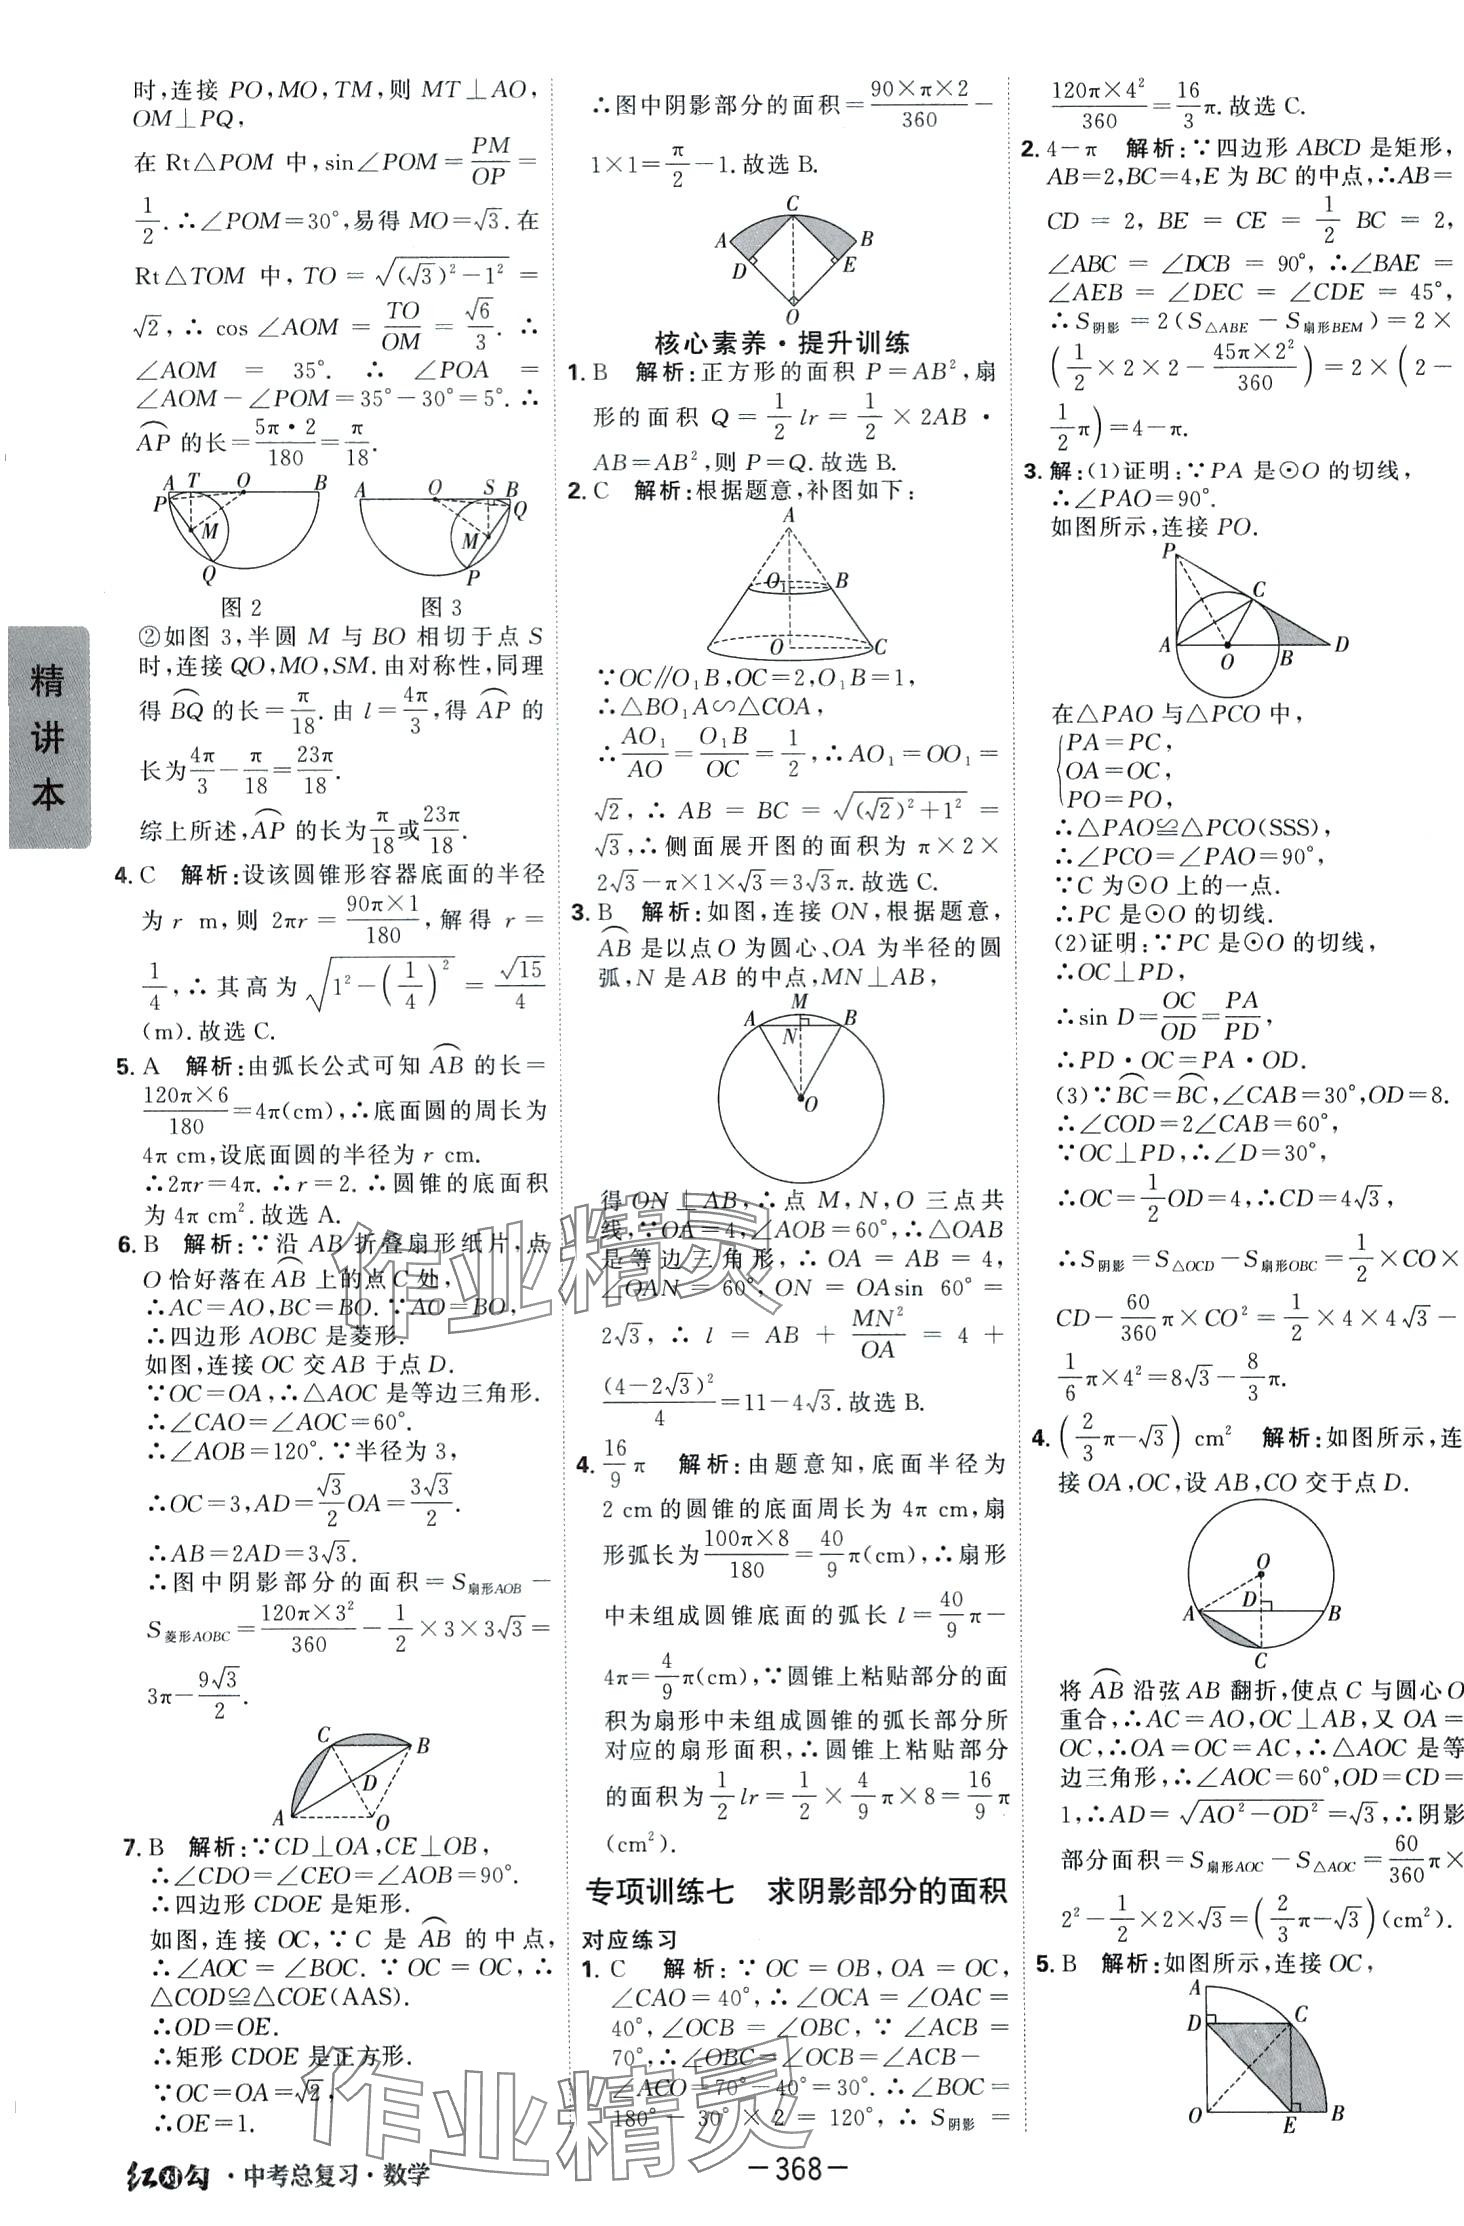 时,连接 PO,MO,TM,则 MT⊥AO,
OM⊥PQ,
在 Rt△POM 中,sin∠POM=PM/OP=
1/2.∴∠POM=30°,易得 MO=√3.在
Rt△TOM 中,TO=√((√3)²-1²)=
√2,∴cos∠AOM=TO/OM=√6/3.∴
∠AOM=35°.∴∠POA=
∠AOM-∠POM=35°-30°=5°.∴
⌒AP 的长=5π•2/180=π/18.
A T O B P M Q
A O S B Q M P
图 2 图 3
②如图 3,半圆 M 与 BO 相切于点 S
时,连接 QO,MO,SM.由对称性,同理
得⌒BQ 的长=π/18.由 l=4π/3,得⌒AP 的
长为4π/3-π/18=23π/18.
综上所述,⌒AP 的长为π/18或23π/18.
4. C 解析:设该圆锥形容器底面的半径
为 r m,则 2πr=90π×1/180,解得 r=
1/4,∴其高为√(1²-(1/4)²)=√15/4
(m).故选 C.
5. A 解析:由弧长公式可知⌒AB 的长=
120π×6/180=4π(cm),∴底面圆的周长为
4π cm,设底面圆的半径为 r cm.
∴2πr=4π.∴r=2.∴圆锥的底面积
为 4π cm².故选 A.
6. B 解析:∵沿 AB 折叠扇形纸片,点
O 恰好落在⌒AB 上的点 C 处,
∴AC=AO,BC=BO.∵AO=BO,
∴四边形 AOBC 是菱形.
如图,连接 OC 交 AB 于点 D.
∵OC=OA,∴△AOC 是等边三角形.
∴∠CAO=∠AOC=60°.
∴∠AOB=120°.∵半径为 3,
∴OC=3,AD=√3/2 OA=3√3/2.
∴AB=2AD=3√3.
∴图中阴影部分的面积=S扇形AOB-
S菱形AOBC=120π×3²/360-1/2×3×3√3=
3π-9√3/2.
C B D A O
7. B 解析:∵CD⊥OA,CE⊥OB,
∴∠CDO=∠CEO=∠AOB=90°.
∴四边形 CDOE 是矩形.
如图,连接 OC,∵C 是⌒AB 的中点,
∴∠AOC=∠BOC.∵OC=OC,∴
△COD≌△COE(AAS).
∴OD=OE.
∴矩形 CDOE 是正方形.
∵OC=OA=√2,
∴OE=1.
∴图中阴影部分的面积=90×π×2/360-
1×1=π/2-1.故选 B.
C A B D E O
核心素养·提升训练
1. B 解析:正方形的面积 P=AB²,扇
形的面积 Q=1/2 lr=1/2×2AB•
AB=AB²,则 P=Q.故选 B.
2. C 解析:根据题意,补图如下:
A O₁ B O C
∵OC∥O₁B,OC=2,O₁B=1,
∴△BO₁A∽△COA,
∴AO₁/AO=O₁B/OC=1/2,∴AO₁=OO₁=
√2,∴AB=BC=√((√2)²+1²)=
√3,∴侧面展开图的面积为 π×2×
2√3-π×1×√3=3√3π.故选 C.
3. B 解析:如图,连接 ON,根据题意,
⌒AB 是以点 O 为圆心、OA 为半径的圆
弧,N 是 AB 的中点,MN⊥AB,
M A N B O
得 ON⊥AB,∴点 M,N,O 三点共
线,∵OA=4,∠AOB=60°,∴△OAB
是等边三角形,∴OA=AB=4,
∠OAN=60°,ON=OAsin 60°=
2√3,∴l=AB+MN²/OA=4+
(4-2√3)²/4=11-4√3.故选 B.
4. 16/9 π 解析:由题意知,底面半径为
2 cm 的圆锥的底面周长为 4π cm,扇
形弧长为100π×8/180=40/9 π(cm),∴扇形
中未组成圆锥底面的弧长 l=40/9 π-
4π=4/9 π(cm),∵圆锥上粘贴部分的面
积为扇形中未组成圆锥的弧长部分所
对应的扇形面积,∴圆锥上粘贴部分
的面积为1/2 lr=1/2×4/9 π×8=16/9 π
(cm²).
专项训练七 求阴影部分的面积
对应练习
1. C 解析:∵OC=OB,OA=OC,
∠CAO=40°,∴∠OCA=∠OAC=
40°,∠OCB=∠OBC,∵∠ACB=
70°,∴∠OBC=∠OCB=∠ACB-
∠ACO=70°-40°=30°.∴∠BOC=
180°-30°×2=120°,∴S阴影=
120π×4²/360=16/3 π.故选 C.
2. 4-π 解析:∵四边形 ABCD 是矩形,
AB=2,BC=4,E 为 BC 的中点,∴AB=
CD=2,BE=CE=1/2 BC=2,
∠ABC=∠DCB=90°,∴∠BAE=
∠AEB=∠DEC=∠CDE=45°,
∴S阴影=2(S△ABE-S扇形BEM)=2×
(1/2×2×2-45π×2²/360)=2×(2-
1/2 π)=4-π.
3. 解:(1)证明:∵PA 是⊙O 的切线,
∴∠PAO=90°.
如图所示,连接 PO.
P C A O B D
在△PAO 与△PCO 中,
{PA=PC,
OA=OC,
PO=PO,
∴△PAO≌△PCO(SSS),
∴∠PCO=∠PAO=90°,
∵C 为⊙O 上的一点.
∴PC 是⊙O 的切线.
(2)证明:∵PC 是⊙O 的切线,
∴OC⊥PD,
∴sin D=OC/OD=PA/PD,
∴PD•OC=PA•OD.
(3)∵⌒BC=⌒BC,∠CAB=30°,OD=8.
∴∠COD=2∠CAB=60°,
∵OC⊥PD,∴∠D=30°,
∴OC=1/2 OD=4,∴CD=4√3,
∴S阴影=S△OCD-S扇形OBC=1/2×CO×
CD-60/360 π×CO²=1/2×4×4√3-
1/6 π×4²=8√3-8/3 π.
4. (2/3 π-√3) cm² 解析:如图所示,连
接 OA,OC,设 AB,CO 交于点 D.
O D A B C
将⌒AB 沿弦 AB 翻折,使点 C 与圆心 O
重合,∴AC=AO,OC⊥AB,又 OA=
OC,∴OA=OC=AC,∴△AOC 是等
边三角形,∴∠AOC=60°,OD=CD=
1,∴AD=√(AO²-OD²)=√3,∴阴影
部分面积=S扇形AOC-S△AOC=60/360 π×
2²-1/2×2×√3=(2/3 π-√3)(cm²).
5. B 解析:如图所示,连接 OC,
A D C O E B
精讲本
作业精灵
作业精灵
红对勾·中考总复习·数学
—368—